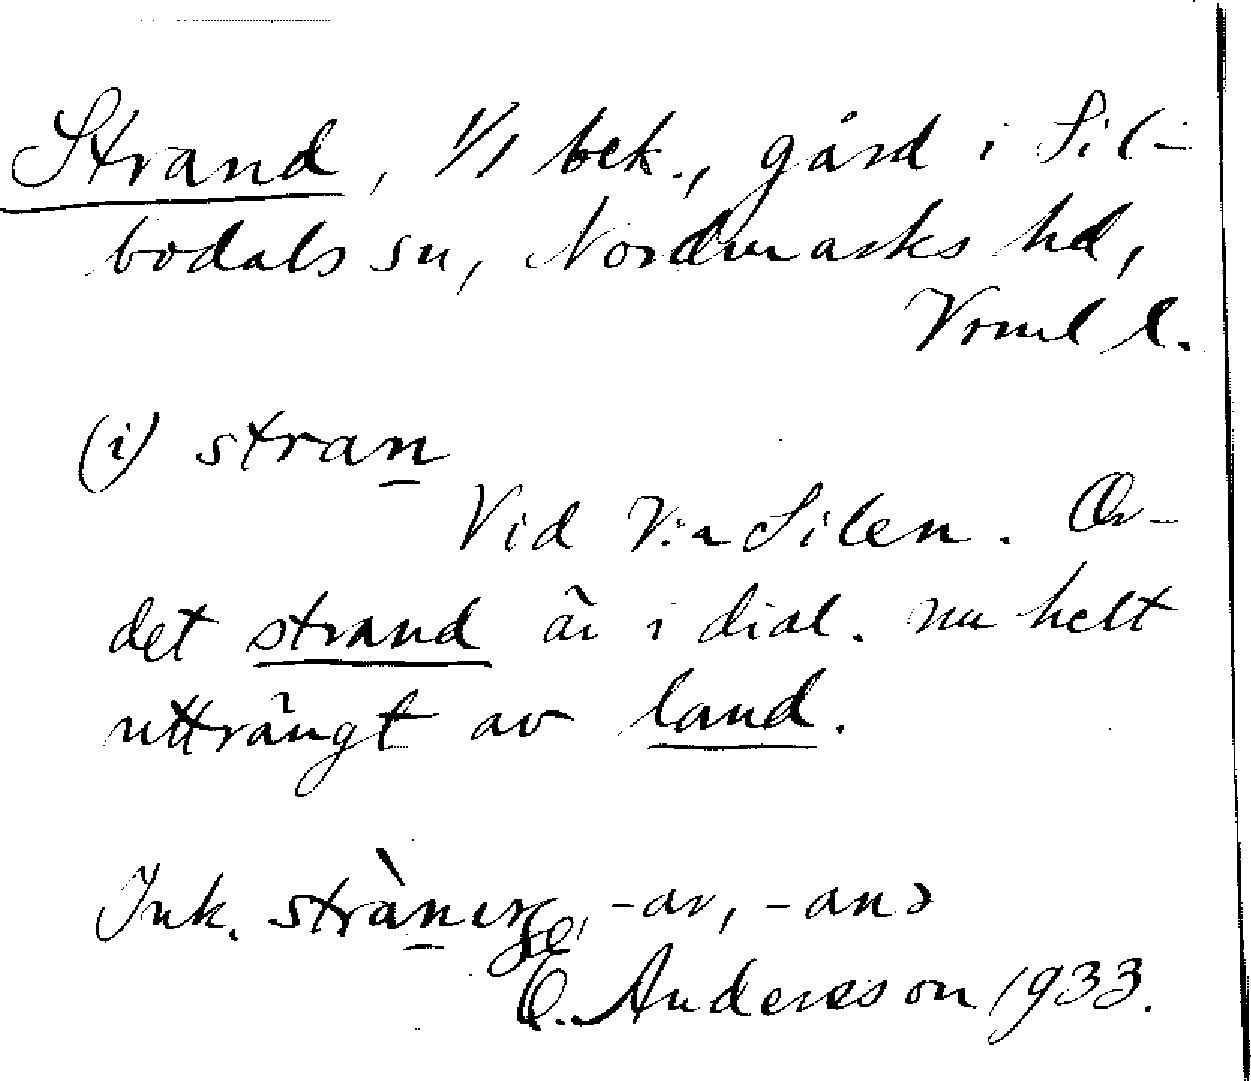 Strand, 1/1 bek., gård i Sil-
bodals sn, Nordmarks hd,
Vrml l.
(i) stran
Vid V:a Silen. Or-
det strand är i dial. nu helt
utträngt av land.
Ink. -ar, -anə
Andersson 1933.